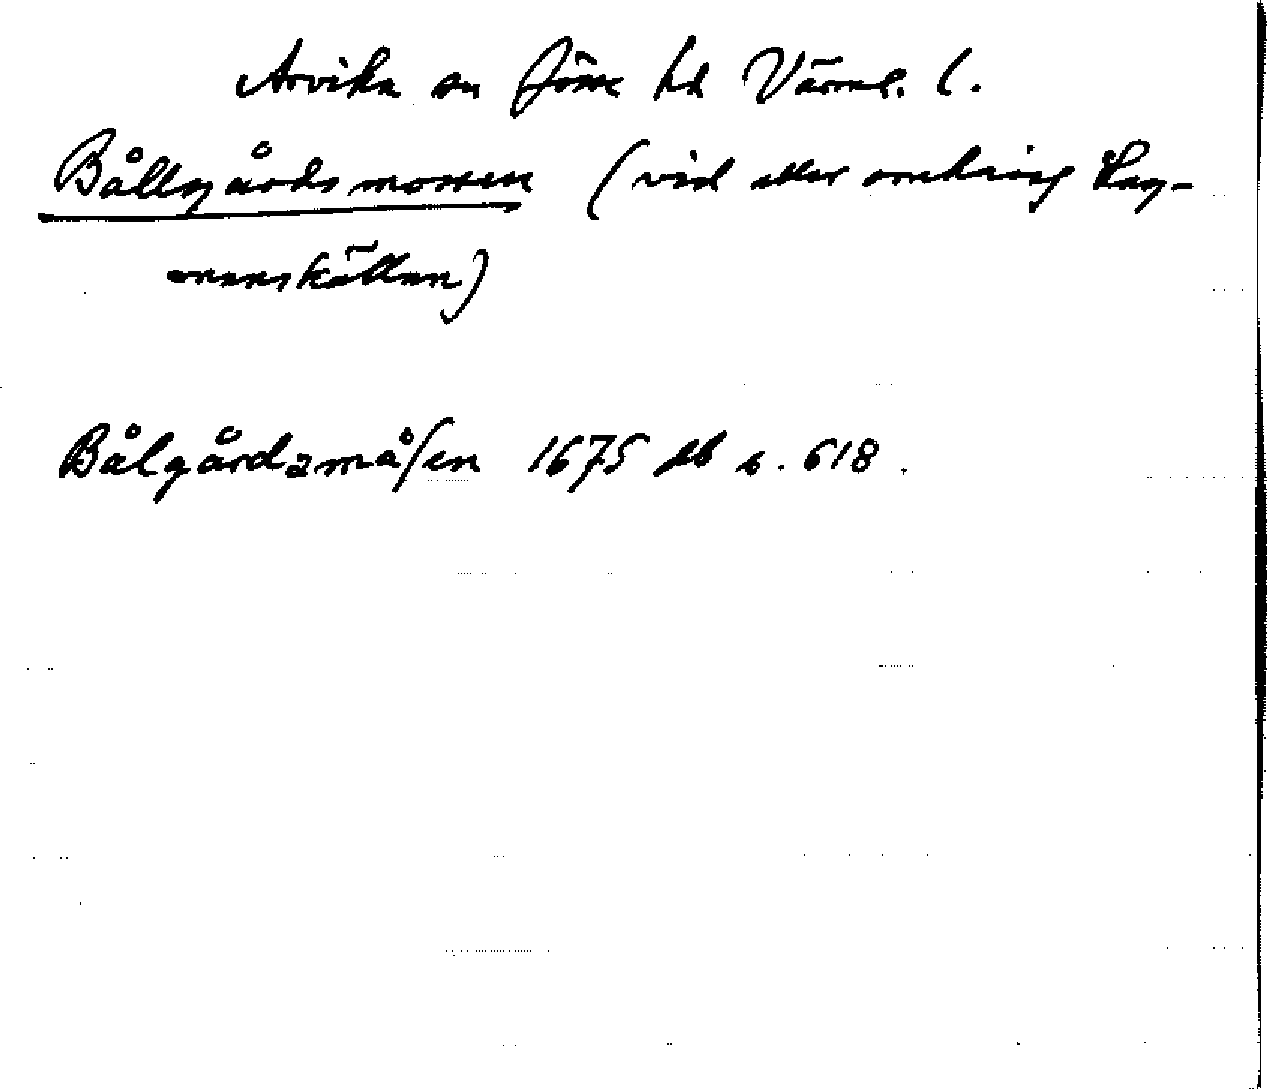 Arvika sn Jösse hd Värml. l.
Bållgårdsmossen (vid eller omkring Lag-
manskällan)
Bålgårdzmåſen 1675 db s. 618.